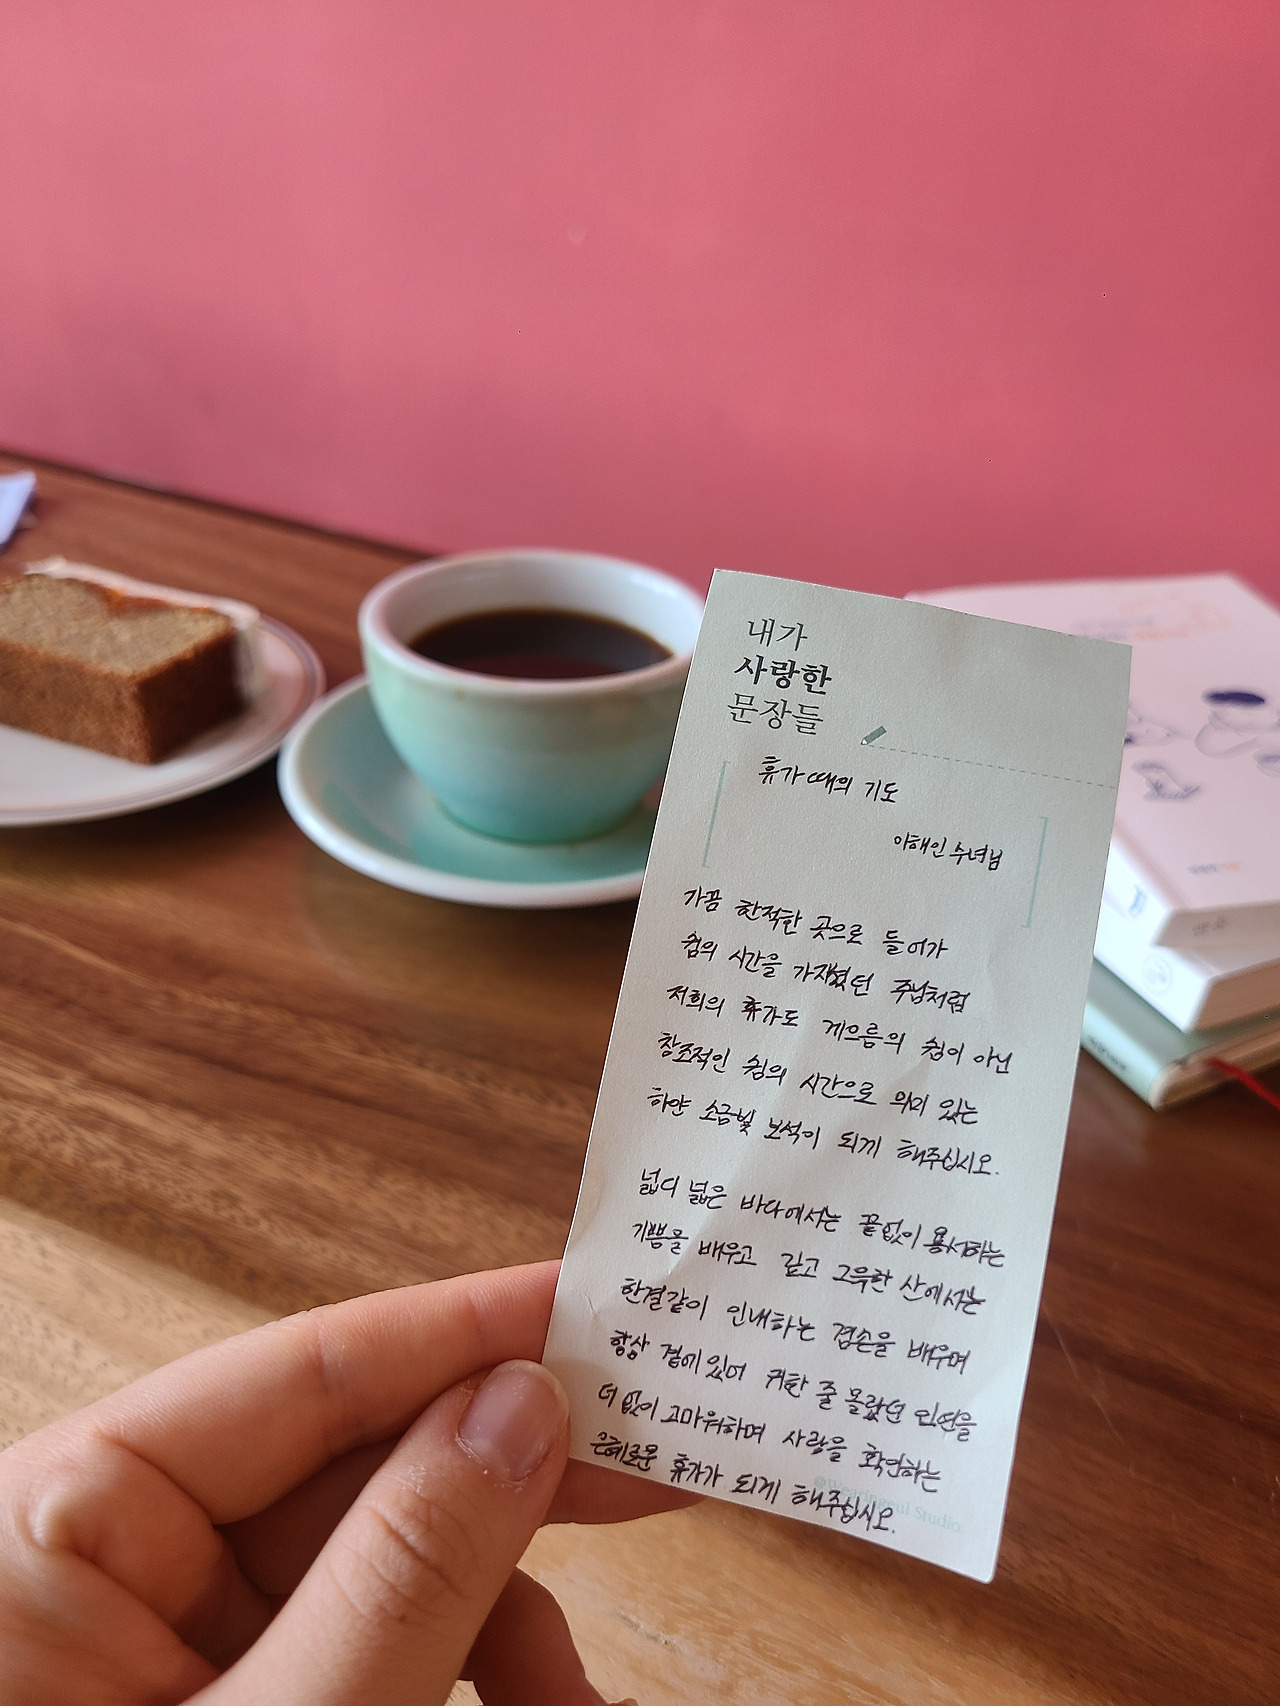 내가
사랑한
문장들
휴가 때의 기도
이해인 수녀님
가끔 한적한 곳으로 들어가
쉼의 시간을 가지셨던 주님처럼
저희의 휴가도 게으름의 쉼이 아닌
창조적인 쉼의 시간으로 의미 있는
하얀 소금빛 보석이 되게 해주십시오.
넓디 넓은 바다에서는 끝없이 용서하는
기쁨을 배우고 깊고 그윽한 산에서는
한결같이 인내하는 겸손을 배우며
항상 곁에 있어 귀한 줄 몰랐던 인연을
더 없이 고마워하며 사랑을 확인하는
은혜로운 휴가가 되게 해주십시오.
@Wearingeul Studio